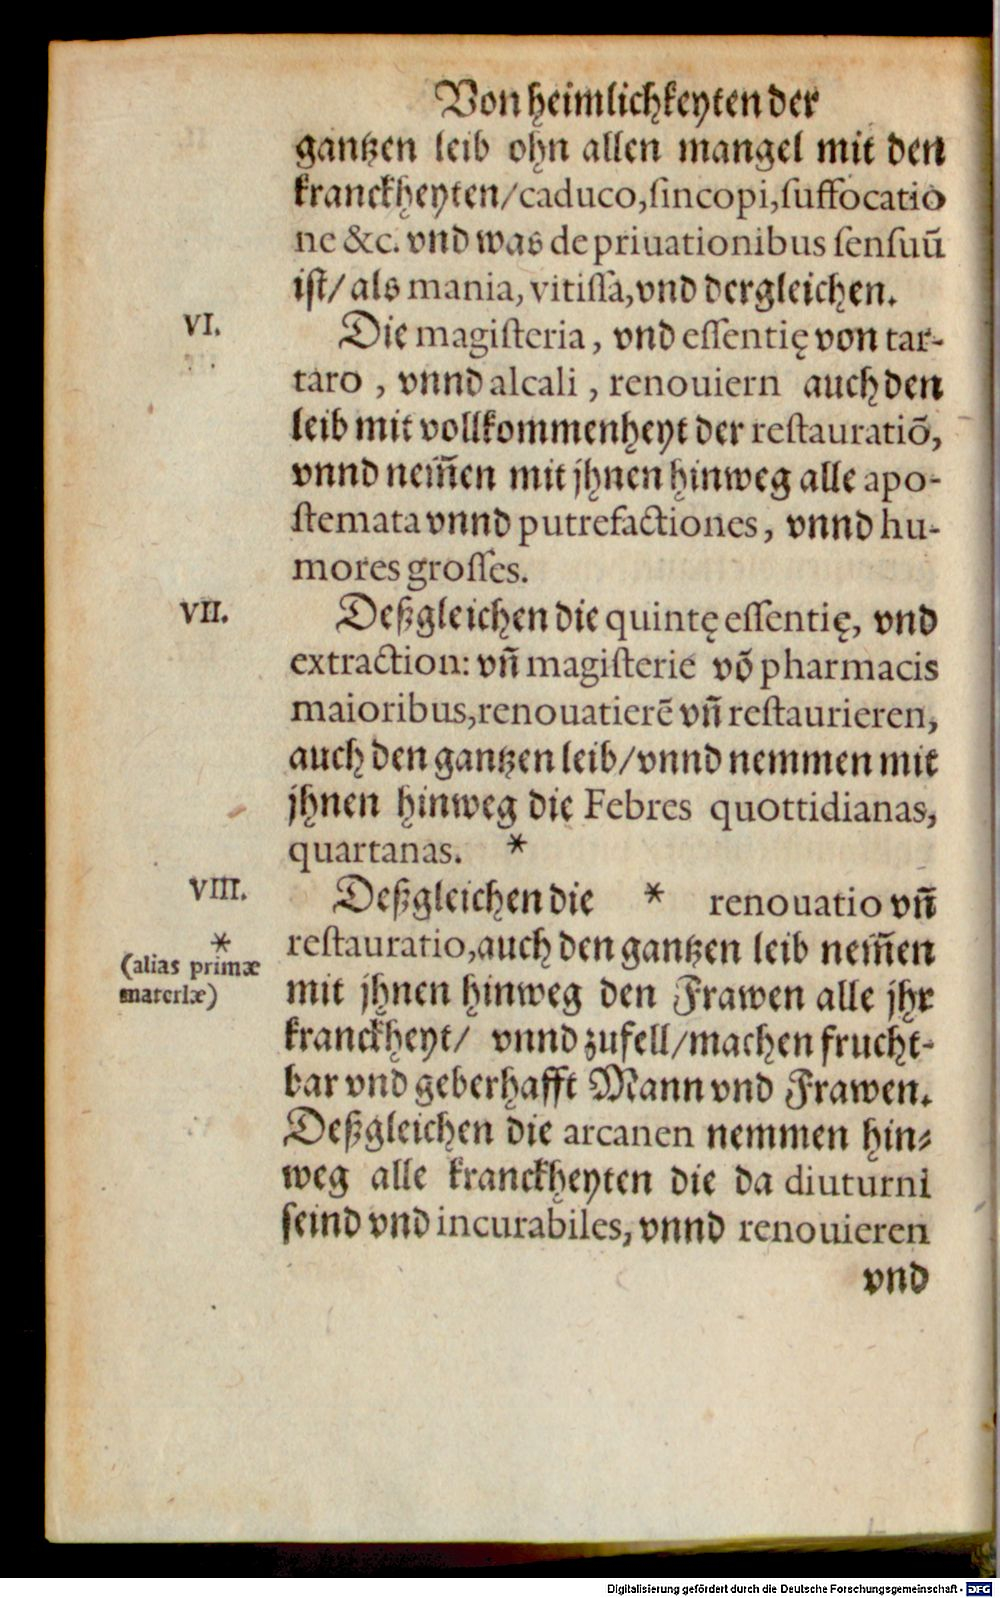 Von heimlichkeyten der
gantzen leib ohn allen mangel mit den
kranckheyten/caduco,sincopi,suffocatio
ne &c. vnd was de priuationibus sensuū
ist/als mania, vitissa,vnd dergleichen.
VI.
Die magisteria, vnd essentię von tar-
taro, vnnd alcali, renouiern auch den
leib mit vollkommenheyt der restauratiō,
vnnd nem̃en mit jhnen hinweg alle apo-
stemata vnnd putrefactiones, vnnd hu-
mores grosses.
VII.
Deßgleichen die quintę essentię, vnd
extraction: vñ magisterie võ pharmacis
maioribus,renouatierē vñ restaurieren,
auch den gantzen leib/vnnd nemmen mit
jhnen hinweg die Febres quottidianas,
quartanas. *
VIII.
Deßgleichen die * renouatio vñ
*
(alias primæ
materiæ)
restauratio,auch den gantzen leib nem̃en
mit jhnen hinweg den Frawen alle jhr
kranckheyt/ vnnd zufell/machen frucht-
bar vnd geberhafft Mann vnd Frawen.
Deßgleichen die arcanen nemmen hin-
weg alle kranckheyten die da diuturni
seind vnd incurabiles, vnnd renouieren
vnd
Digitalisierung gefördert durch die Deutsche Forschungsgemeinschaft - DFG